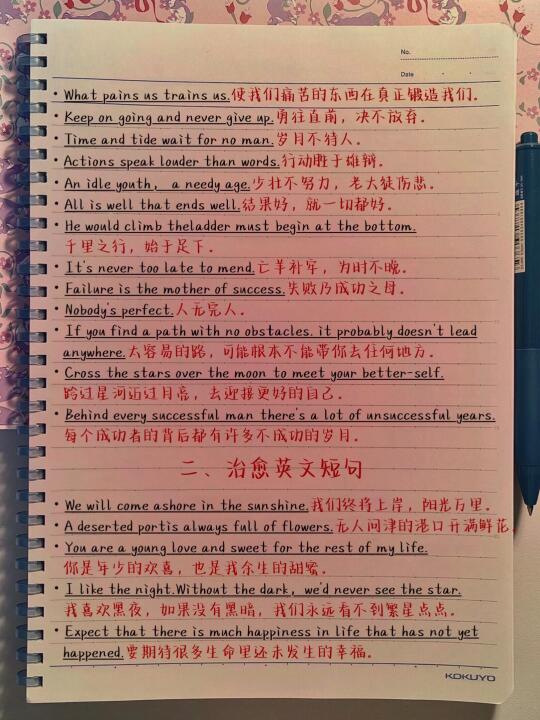 No.
Date
• What pains us trains us.使我们痛苦的东西在真正锻造我们。
• Keep on going and never give up.勇往直前，决不放弃。
• Time and tide wait for no man.岁月不待人。
• Actions speak louder than words.行动胜于雄辩。
• An idle youth， a needy age.少壮不努力，老大徒伤悲。
• All is well that ends well.结果好，就一切都好。
• He would climb theladder must begin at the bottom.
千里之行，始于足下。
• It's never too late to mend.亡羊补牢，为时不晚。
• Failure is the mother of success.失败乃成功之母。
• Nobody's perfect.人无完人。
• If you find a path with no obstacles, it probably doesn't lead
anywhere.太容易的路，可能根本不能带你去任何地方。
• Cross the stars over the moon to meet your better-self.
跨过星河迈过月亮，去迎接更好的自己。
• Behind every successful man there's a lot of unsuccessful years.
每个成功者的背后都有许多不成功的岁月。
二、治愈英文短句
• We will come ashore in the sunshine.我们终将上岸，阳光万里。
• A deserted portis always full of flowers.无人问津的港口开满鲜花，
• You are a young love and sweet for the rest of my life.
你是年少的欢喜，也是我余生的甜蜜。
• I like the night.Without the dark，we'd never see the star.
我喜欢黑夜，如果没有黑暗，我们永远看不到繁星点点。
• Expect that there is much happiness in life that has not yet
happened.要期待很多生命里还未发生的幸福。
KOKUYO